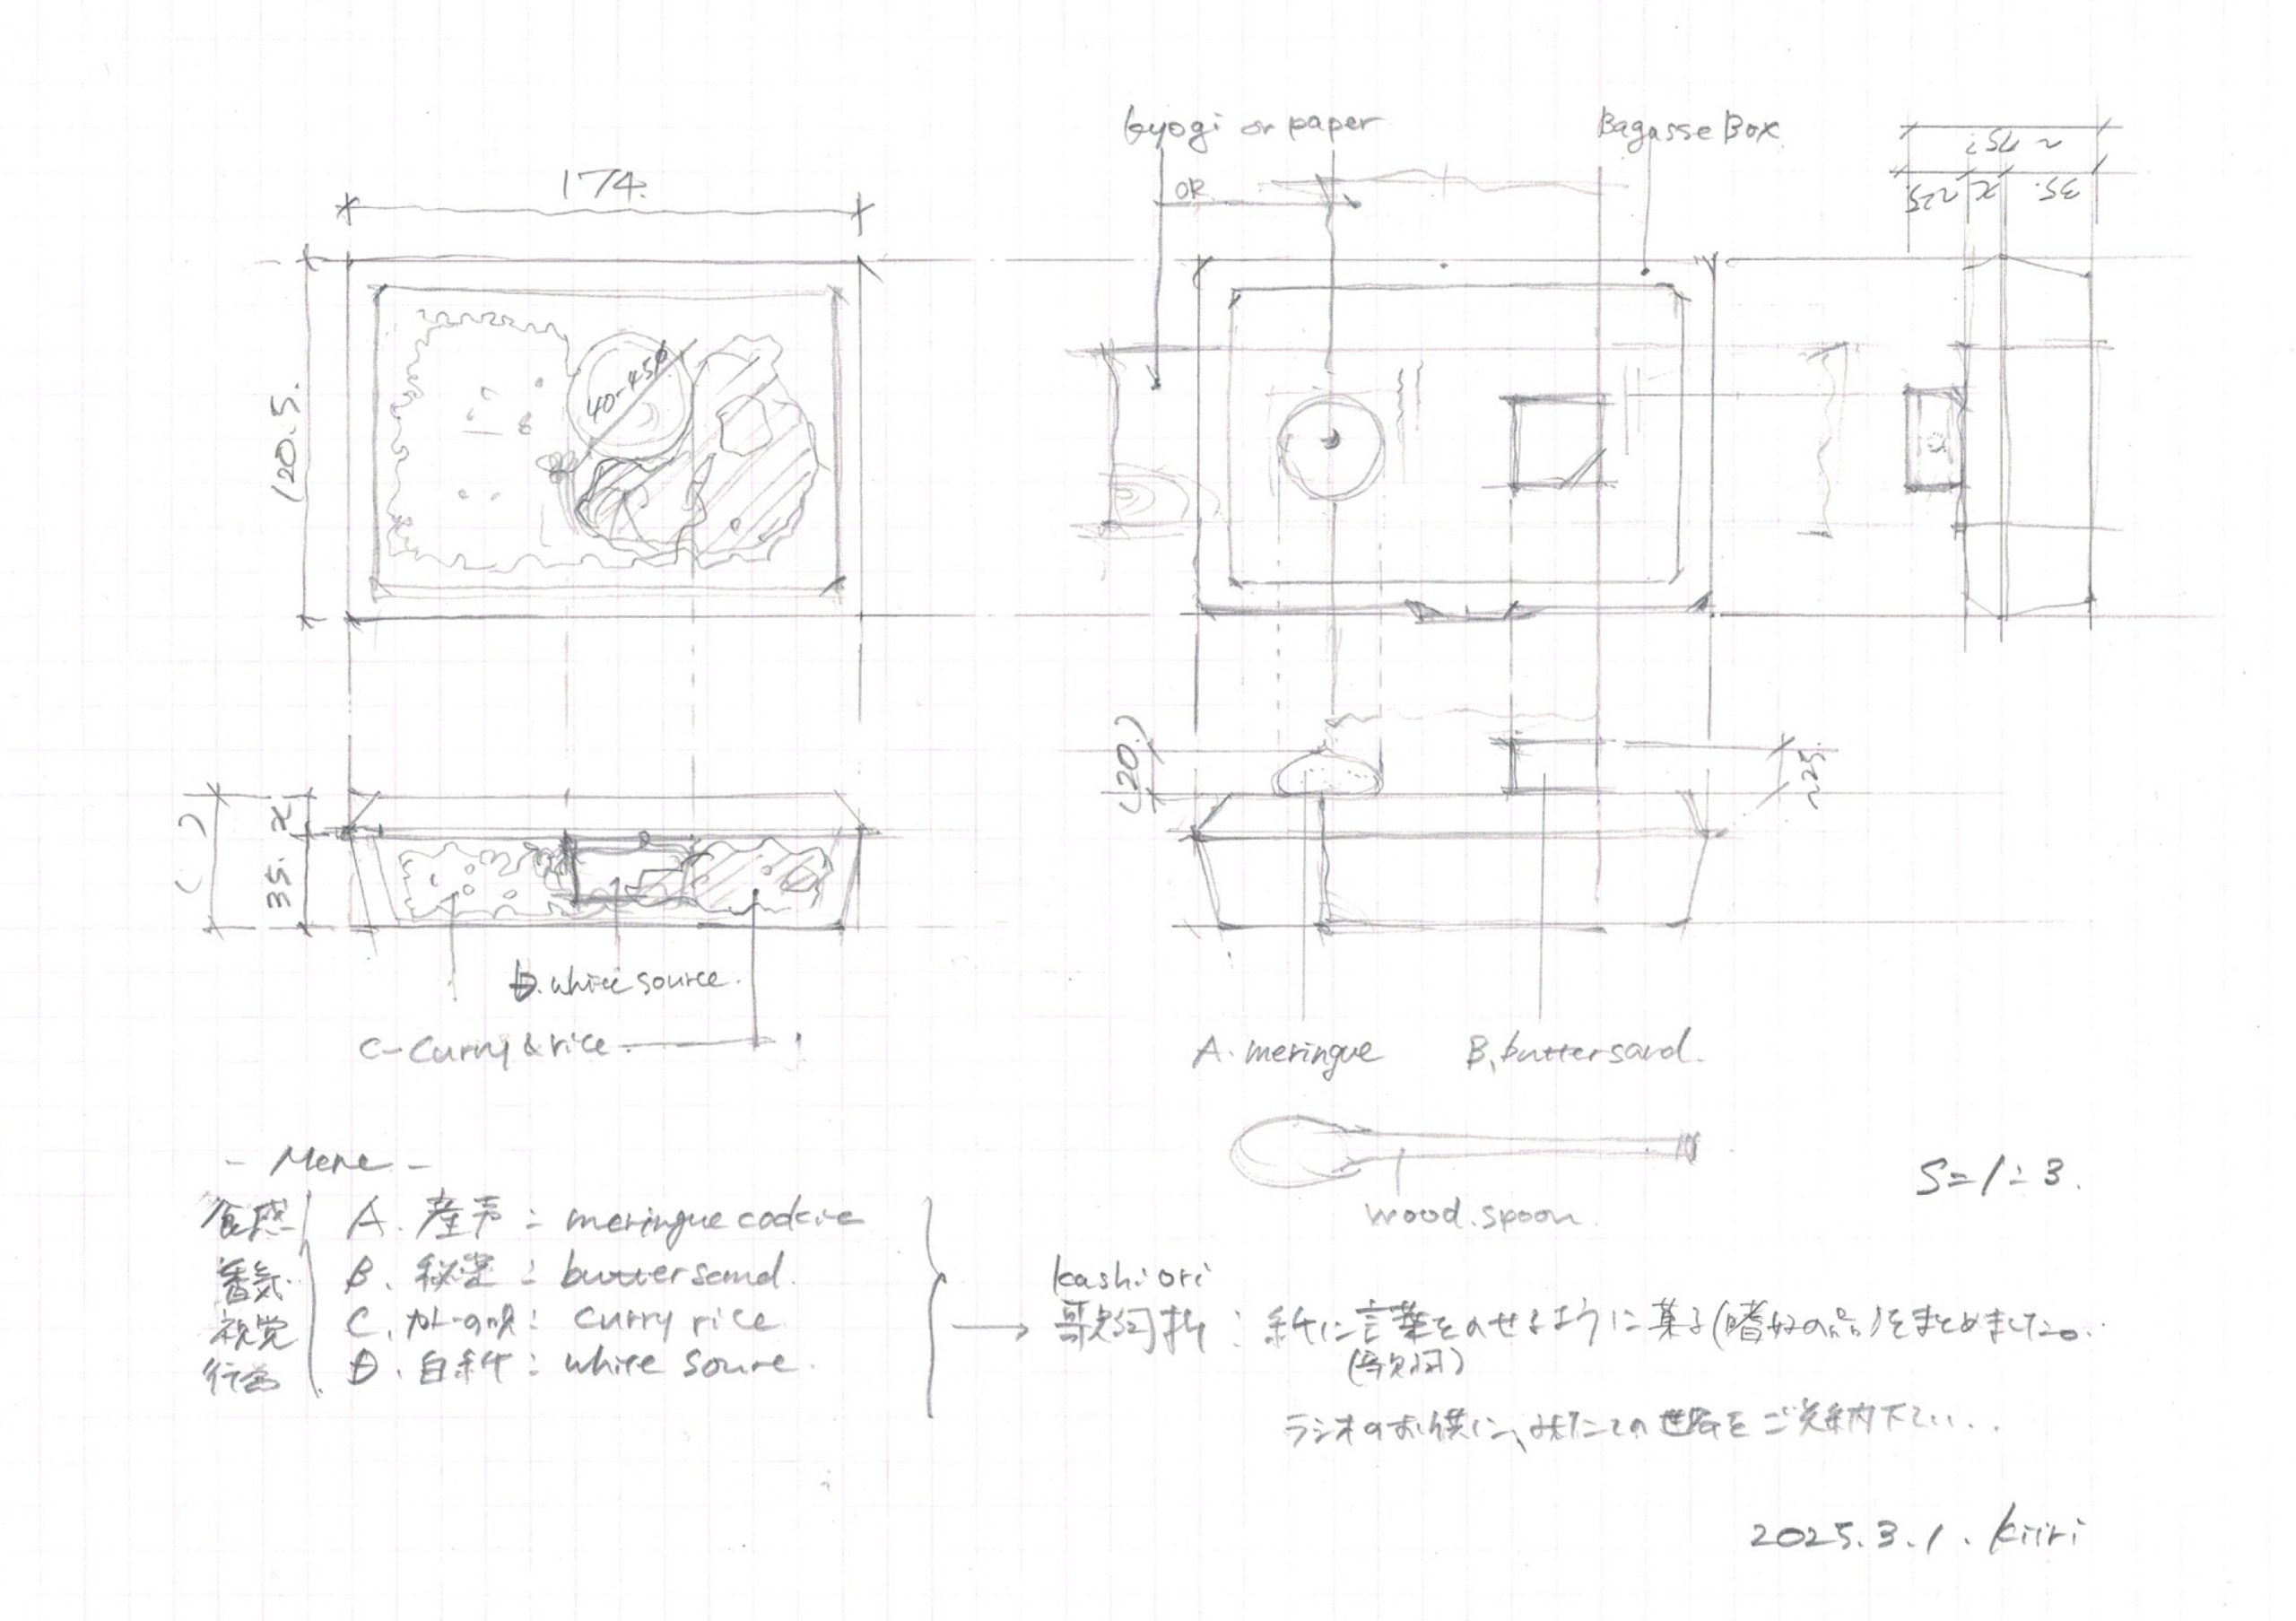 174.
120.5.
40-45φ
( )
x
35.
D. white source.
C- Curry & rice.
kyogi or paper
Bagasse Box
OR
~75?
~25
x
35.
(20)
~25.
A. meringue
B. butter sand.
wood. spoon.
S=1:3.
- Mene -
食感 A. 産声 : meringue cookie
香気 B. 秘密 : butter sand.
視覚 C. : curry rice
行為 D. 白紙 : white soure.
kashi ori
歌詞折 : 紙に言葉をのせるように菓子(嗜好の品)をまとめました。
(歌詞)
ラジオのお供に、の世界をご笑納下さい..
2025.3.1. kiiri